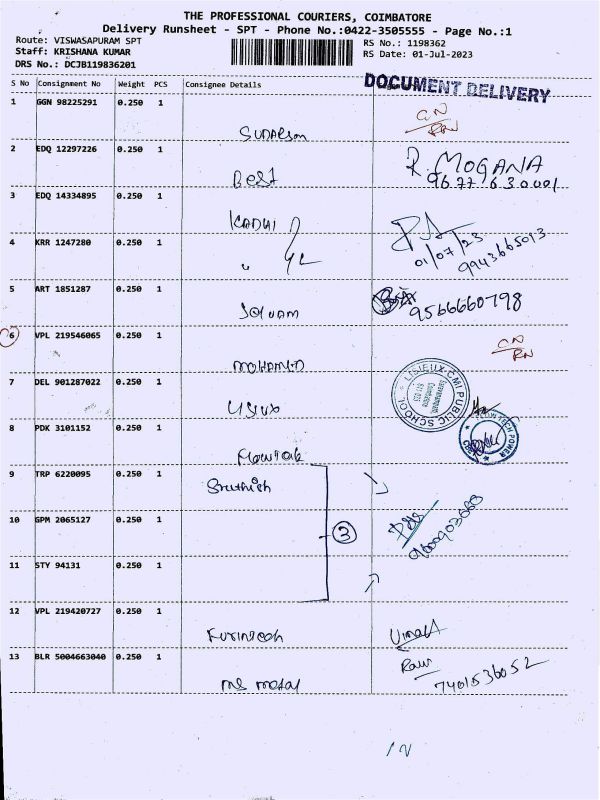 THE PROFESSIONAL COURIERS, COIMBATORE
Delivery Runsheet - SPT - Phone No.:0422-3505555 - Page No.:1
Route: VISWASAPURAM SPT
RS No.: 1198362
Staff: KRISHANA KUMAR
RS Date: 01-Jul-2023
DRS No.: DCJB119836201
S No Consignment No Weight PCS Consignee Details
DOCUMENT DELIVERY
1 GGN 98225291 0.250 1
2 EDQ 12297226 0.250 1 Best R. MOGANA
3 EDQ 14334895 0.250 1
01/07/23
9943665013
4 KRR 1247280 0.250 1
5 ART 1851287 0.250 1 9566660798
6 VPL 219546065 0.250 1
7 DEL 901287022 0.250 1 LISIEUX CMI PUBLIC SCHOOL
8 PDK 3101152 0.250 1
9 TRP 6220095 0.250 1 Sruthish
10 GPM 2065127 0.250 1 3
11 STY 94131 0.250 1
12 VPL 219420727 0.250 1
13 BLR 5004663040 0.250 1
7401536052